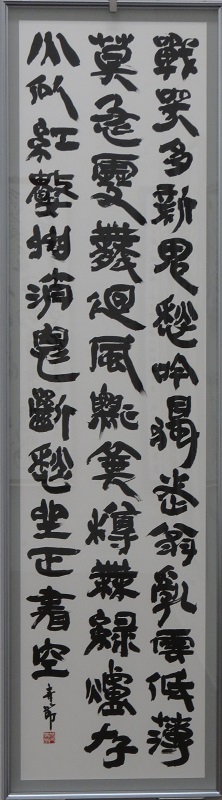 戰哭多新鬼愁吟獨老翁亂雲低薄
莫急雪舞迴風瓢棄樽無綠爐存
火似紅數州消息斷愁坐正書空